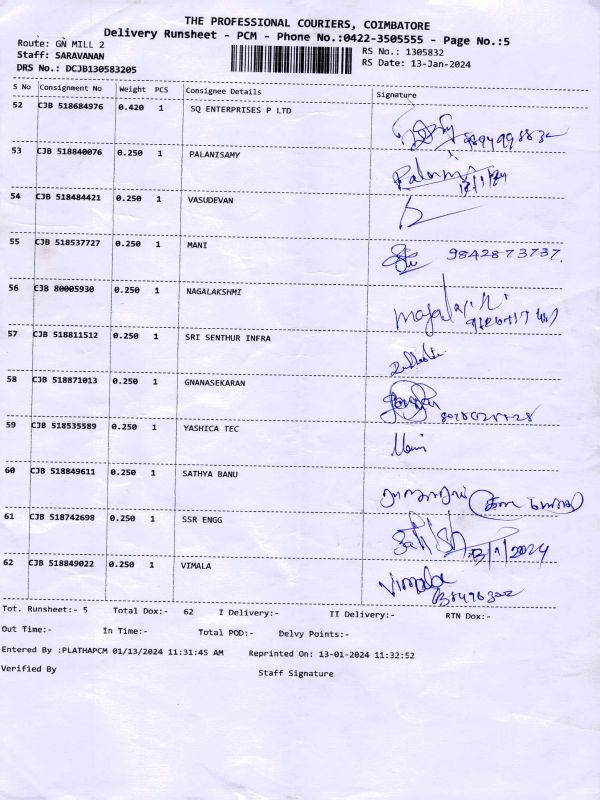 THE PROFESSIONAL COURIERS, COIMBATORE
Delivery Runsheet - PCM - Phone No.:0422-3505555 - Page No.:5
Route: GN MILL 2
RS No.: 1305832
Staff: SARAVANAN
RS Date: 13-Jan-2024
DRS No.: DCJB130583205
S No Consignment No Weight PCS Consignee Details Signature
52 CJB 518684976 0.420 1 SQ ENTERPRISES P LTD
53 CJB 518840076 0.250 1 PALANISAMY
13/1/24
54 CJB 518484421 0.250 1 VASUDEVAN
55 CJB 518537727 0.250 1 MANI 9842873737.
56 CJB 80005930 0.250 1 NAGALAKSHMI
57 CJB 518811512 0.250 1 SRI SENTHUR INFRA
58 CJB 518871013 0.250 1 GNANASEKARAN
59 CJB 518535589 0.250 1 YASHICA TEC
Mani
60 CJB 518849611 0.250 1 SATHYA BANU
61 CJB 518742698 0.250 1 SSR ENGG
13/1/2024
62 CJB 518849022 0.250 1 VIMALA
Vimala
Tot. Runsheet:- 5 Total Dox:- 62 I Delivery:- II Delivery:- RTN Dox:-
Out Time:- In Time:- Total POD:- Delvy Points:-
Entered By :PLATHAPCM 01/13/2024 11:31:45 AM Reprinted On: 13-01-2024 11:32:52
Verified By Staff Signature